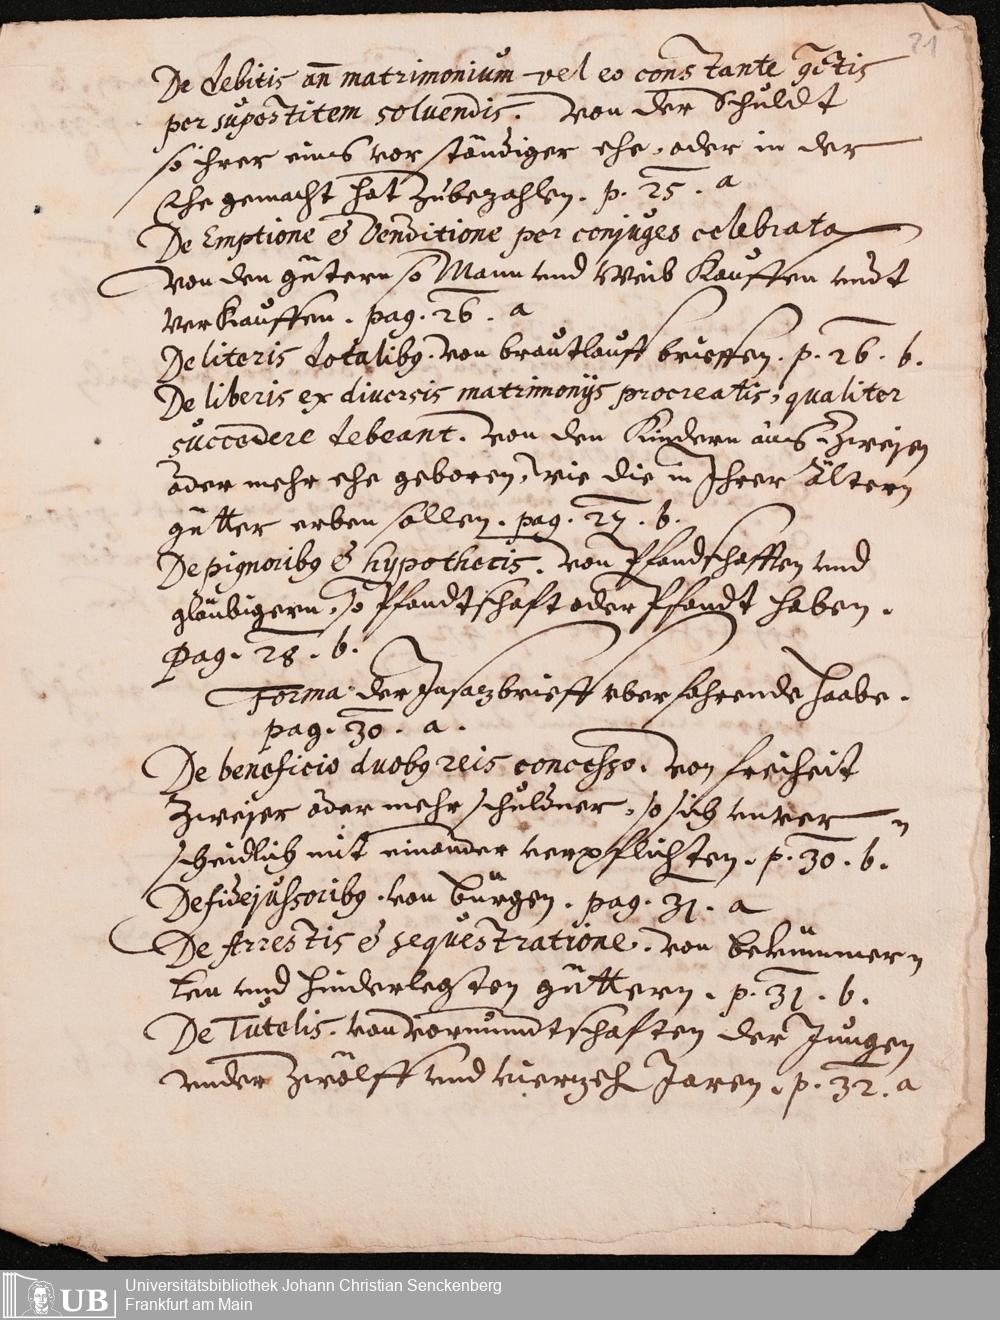 21
De debitis añ matrimonium vel eo constante ꝯtctis
per superstitem soluendis. Von der Schuldt
so ihrer eins vor ständiger ehe, oder in der
Ehe gemacht hat zubezahlen. p. 25. a
De Emptione & Venditione per conjuges celebrata
Von den gütern so Mann und Weib Kauffen undt
verkauffen. pag. 26. a
De literis dotalibꝯ. von brautlauff brieffen. p. 26. b.
De liberis ex diuersis matrimonijs procreatis, qualiter
succedere debeant. Von den Kindern aus Zweyen
oder mehr ehe geboren, wie die in Ihrer Ältern
gütter erben sollen. pag. 27. b.
De pignoribꝯ & hypothecis. von Pfandschafften und
gläubigern, so Pfandtschafft oder Pfandt haben.
pag. 28. b.
Forma der Insatzbrieff vber fahrende Haabe.
pag. 30. a.
De beneficio duobꝯ reis concesso. von freiheit
Zweyer oder mehr schuldner, so sich unver
scheidlich mit einander verpflichten. p. 30. b.
De fidejussoribꝯ. von bürgen. pag. 31. a
De Arrestis & sequestratione. von bekümmer
ten und hinderlegten güttern. p. 31. b.
De Tutelis. von vormundtschafften der Jungen
under Zwölff und vierzeh Jaren. p. 32. a
UB
Universitätsbibliothek Johann Christian Senckenberg
Frankfurt am Main